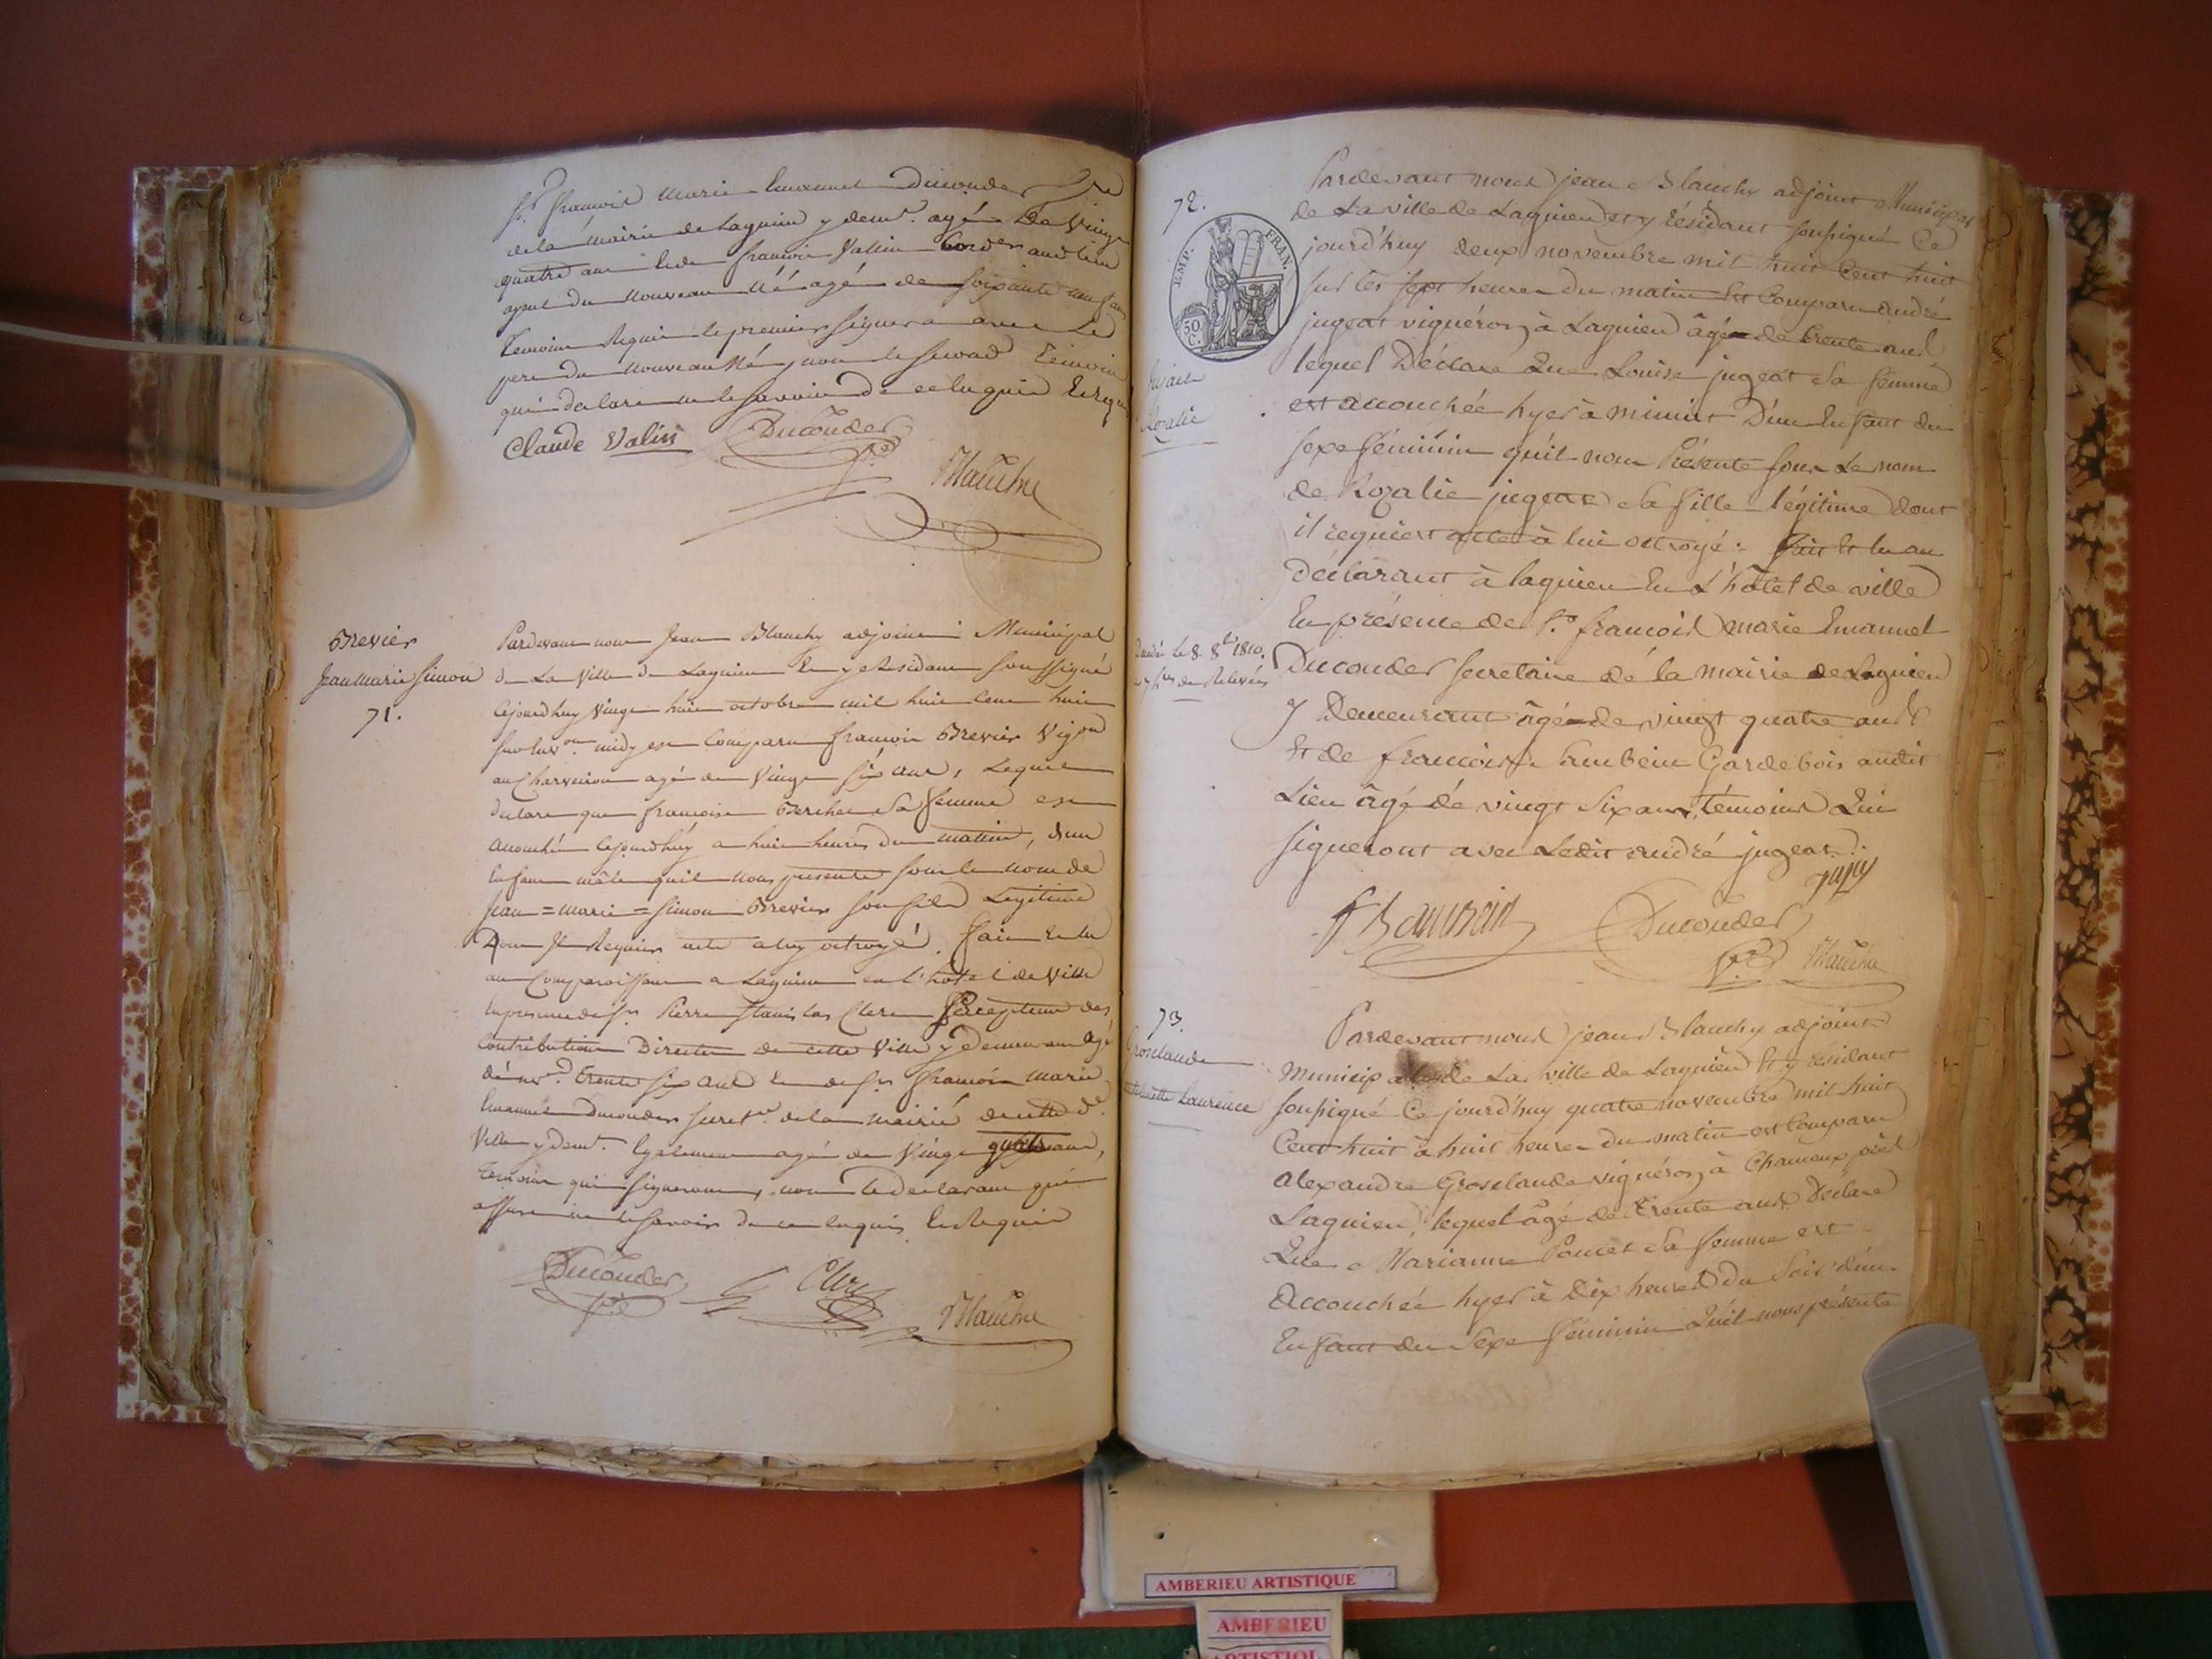 Sr. francois marie Emanuel Duconder Sre
de la mairie de Lagnieu y demt. agé De Vingt
quatre ans et de francois Vallin Cordier audit lieu
ayeul du nouveau Né agé de soixante neuf ans
Temoins Requis le premier signera avec Le
pere du nouveau Né, non le second Temoin
qui declare ne le savoir de ce enquis Et Requis
Claude Valin Duconder
Sre
Blanchy
Brevier
Jean Marie Simon
71.
Pardevant nous Jean Blanchy adjoint Municipal
de La Ville de Lagnieu Et y Residant soussigné
Cejourdhuy Vingt huit octobre mil huit Cent huit
sur les midy est Comparu francois Brevier Vigon
au Charveiron agé de Vingt six ans, Lequel
declare que francoise Bercher Sa femme est
accouchée Cejourdhuy a huit heures du matin, d'un
Enfant mâle quil nous presente sous le nom de
Jean = marie = simon Brevier son fils Legitime
Dont Il Requier acte a luy octroyé. fait Et lu
au Comparoissant a Lagnieu en l'hotel de Ville
En presence de Sr. Pierre Stanislas Clerc Percepteur des
Contributions Directes de cette Ville y Demeurant agé
de Trente six ans Et de Sr. francois marie
Emanuel Duconder secret.re de la mairie de cette de.
Ville y demt. Egalement agé de Vingt quatre ans,
Temoins qui signeront, non le declarant qui
assure ne le savoir de ce enquis Et Requis
Duconder
Sre
Clerc
Blanchy
72.
EMP. FRAN.
50 C.
Jujeat
Rozalie
Pardevant nous jean Blanchy adjoint Municipal
de La ville de Lagnieu et y résidant soussigné Ce
jourd'huy deux novembre mil huit Cent huit
sur les sept heures du matin Est Comparu André
jugeat vigneron à Lagnieu âgé de trente ans
lequel Déclare Que Louise jugeat Sa femme
est accouchée hyer à minuit D'un Enfant du
sexe féminin qu'il nous Présente sous Le nom
de Rozalie jugeat Sa fille légitime dont
il requiert acte à lui octroyé: fait Et lu au
Déclarant à lagnieu En L'hôtel de ville
En présence de Sr. francois marie Emanuel
Duconder secretaire de la mairie de Lagnieu
y Demeurant âgé de vingt quatre ans
Et de francois Gardebois audit
Lieu âgé de vingt six ans, témoins Qui
signeront avec Ledit André jugeat.
Décédé le 8 8bre 1810.
à 7 hres de Relevée
jujay
Duconder
Sre
Blanchy
73.
Groselande
Laurence
Pardevant nous jean Blanchy adjoint
Municipal de La ville de Lagnieu Et y résidant
soussigné Ce jourd'huy quatre novembre mil huit
Cent huit à huit heures du matin est Comparu
alexandre Groselande vigneron à Chamoux près
Lagnieu, lequel âgé de Trente ans Déclare
Que Marianne Poncet Sa femme est
Accouchée hyer à Dix heures Du Soir d'un
Enfant du Sexe féminin Qu'il nous présente
AMBERIEU ARTISTIQUE
AMBERIEU
ARTISTIQUE